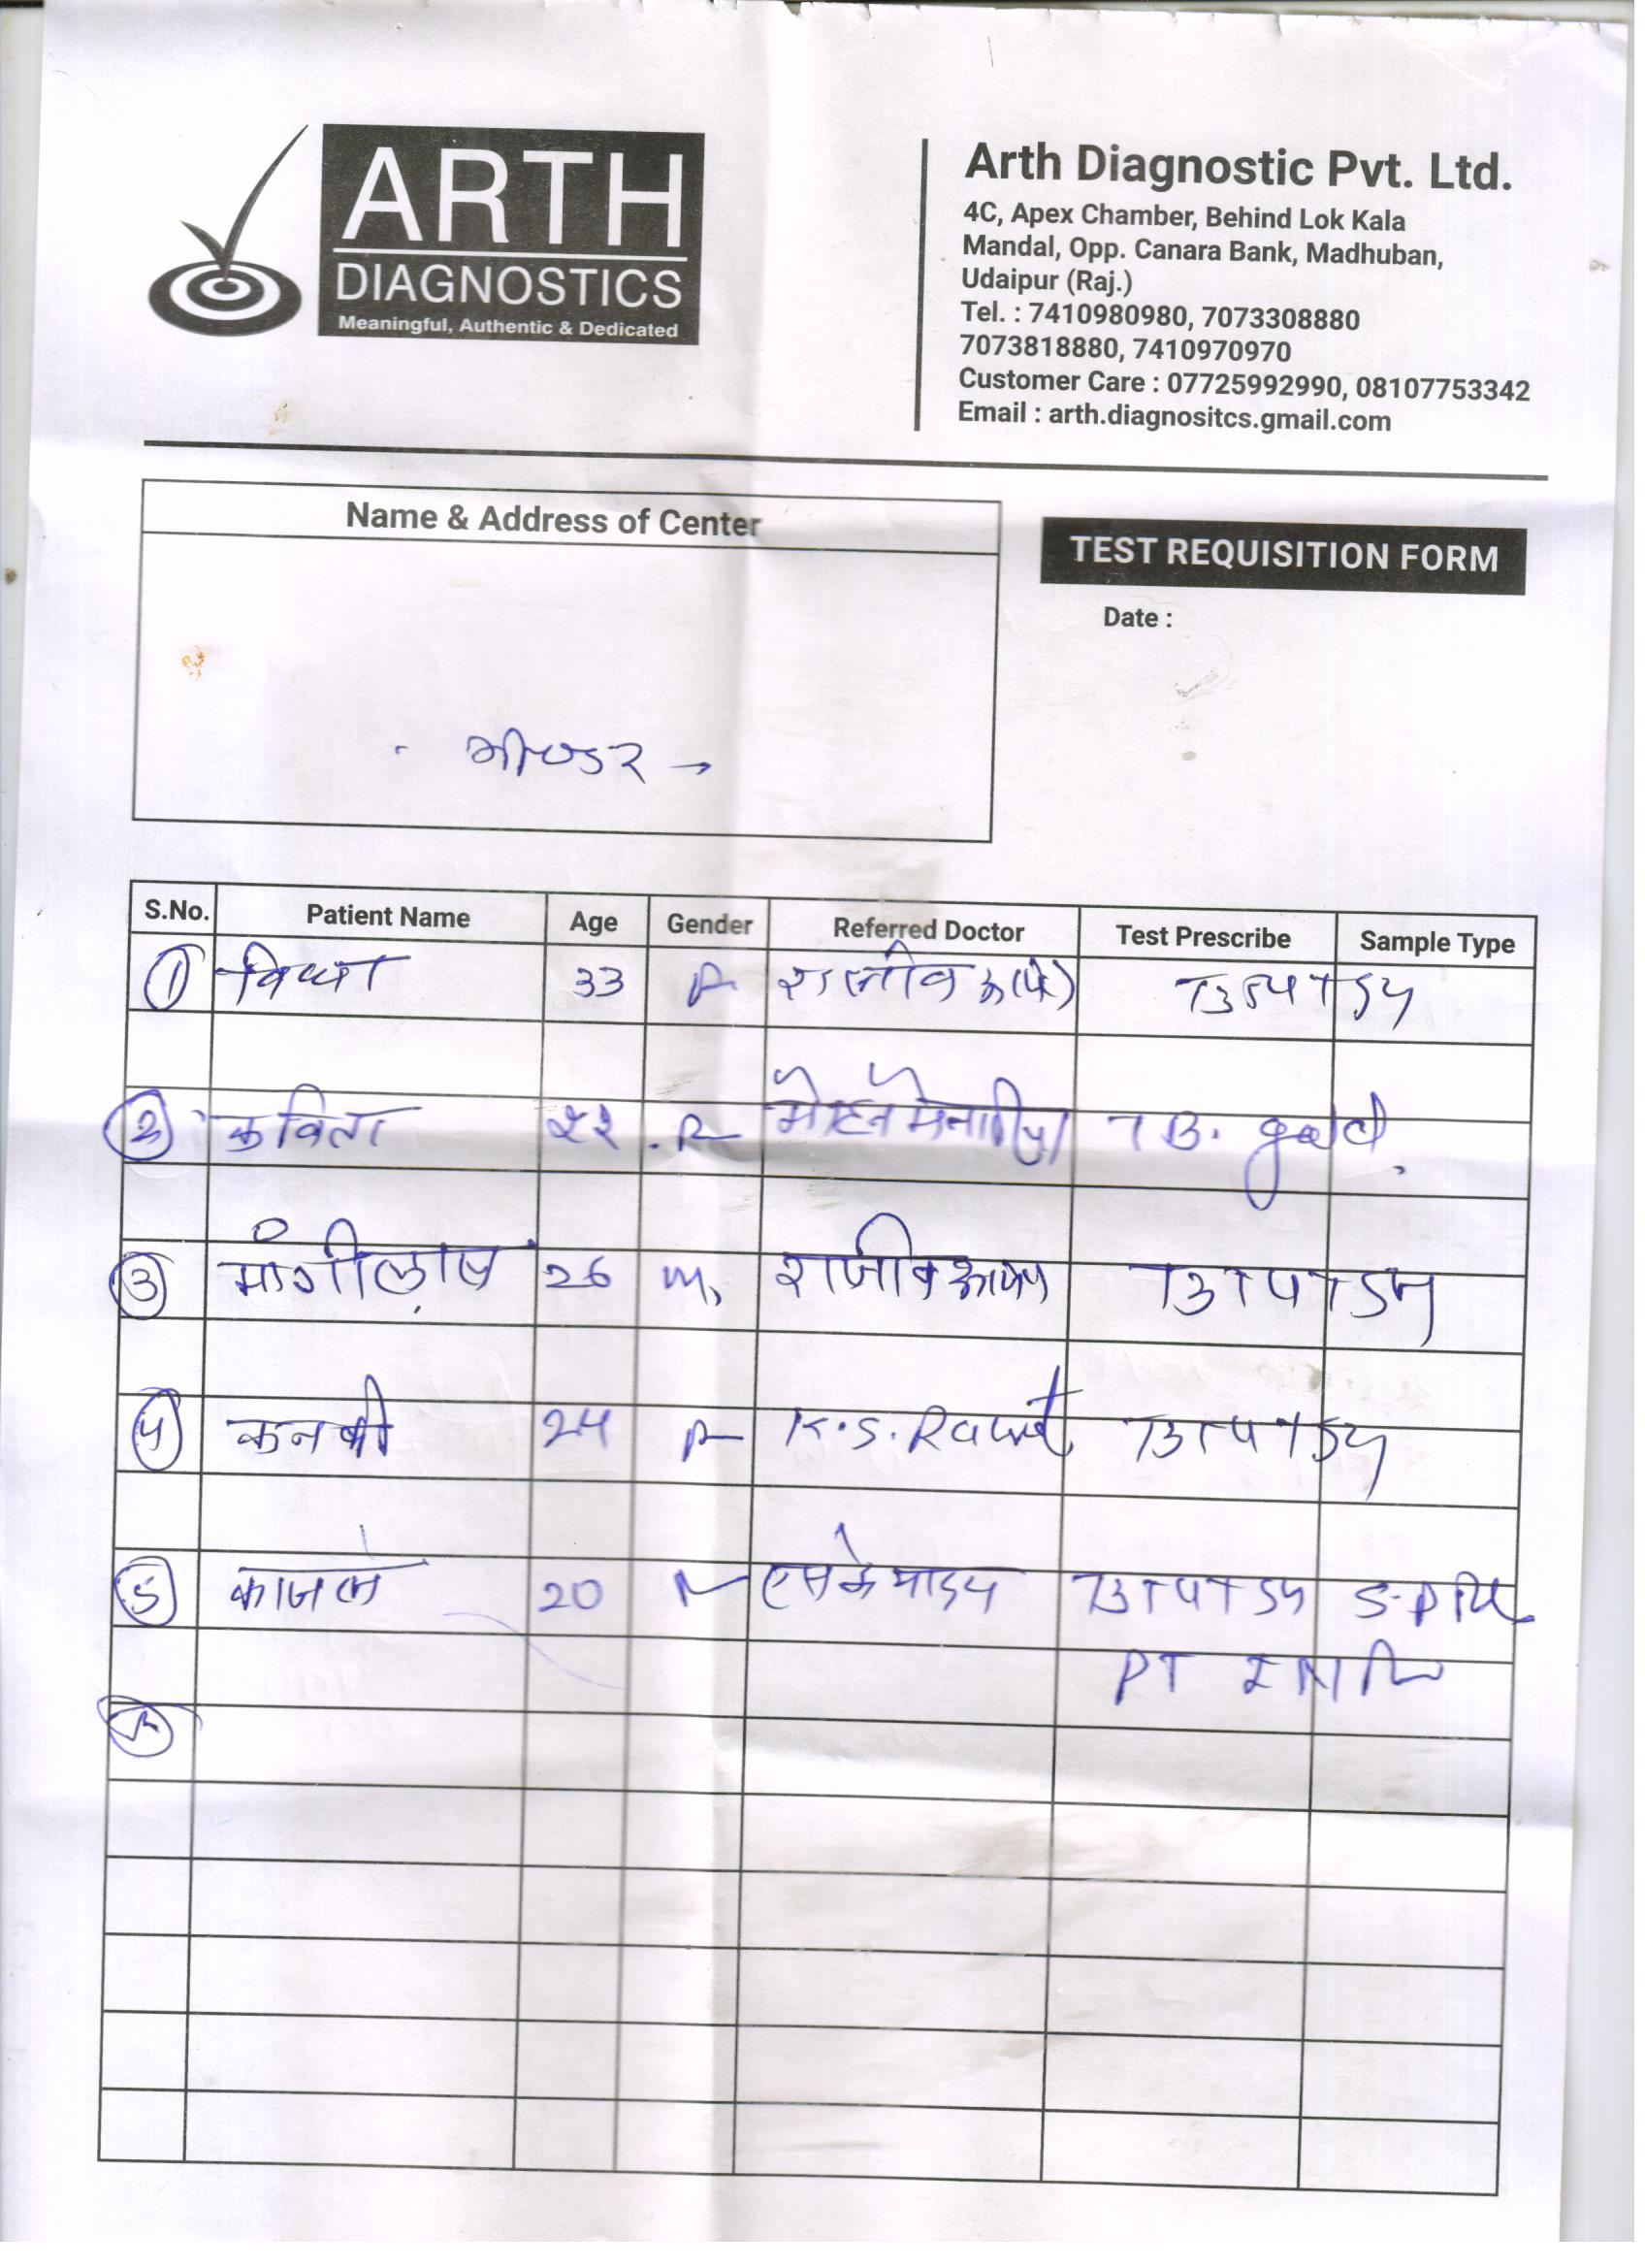 ARTH
DIAGNOSTICS
Meaningful, Authentic & Dedicated
Arth Diagnostic Pvt. Ltd.
4C, Apex Chamber, Behind Lok Kala
Mandal, Opp. Canara Bank, Madhuban,
Udaipur (Raj.)
Tel. : 7410980980, 7073308880
7073818880, 7410970970
Customer Care : 07725992990, 08107753342
Email : arth.diagnositcs.gmail.com
Name & Address of Center
TEST REQUISITION FORM
Date :
भीण्डर
S.No. Patient Name Age Gender Referred Doctor Test Prescribe Sample Type
1 33 राजीव
2 कविता २२ मोहन मेनारिया TB. gold
3 मांगीलाल 26 m राजीव
4 24 K.S. Rawat
5 काजल 20 एस के
PT INR